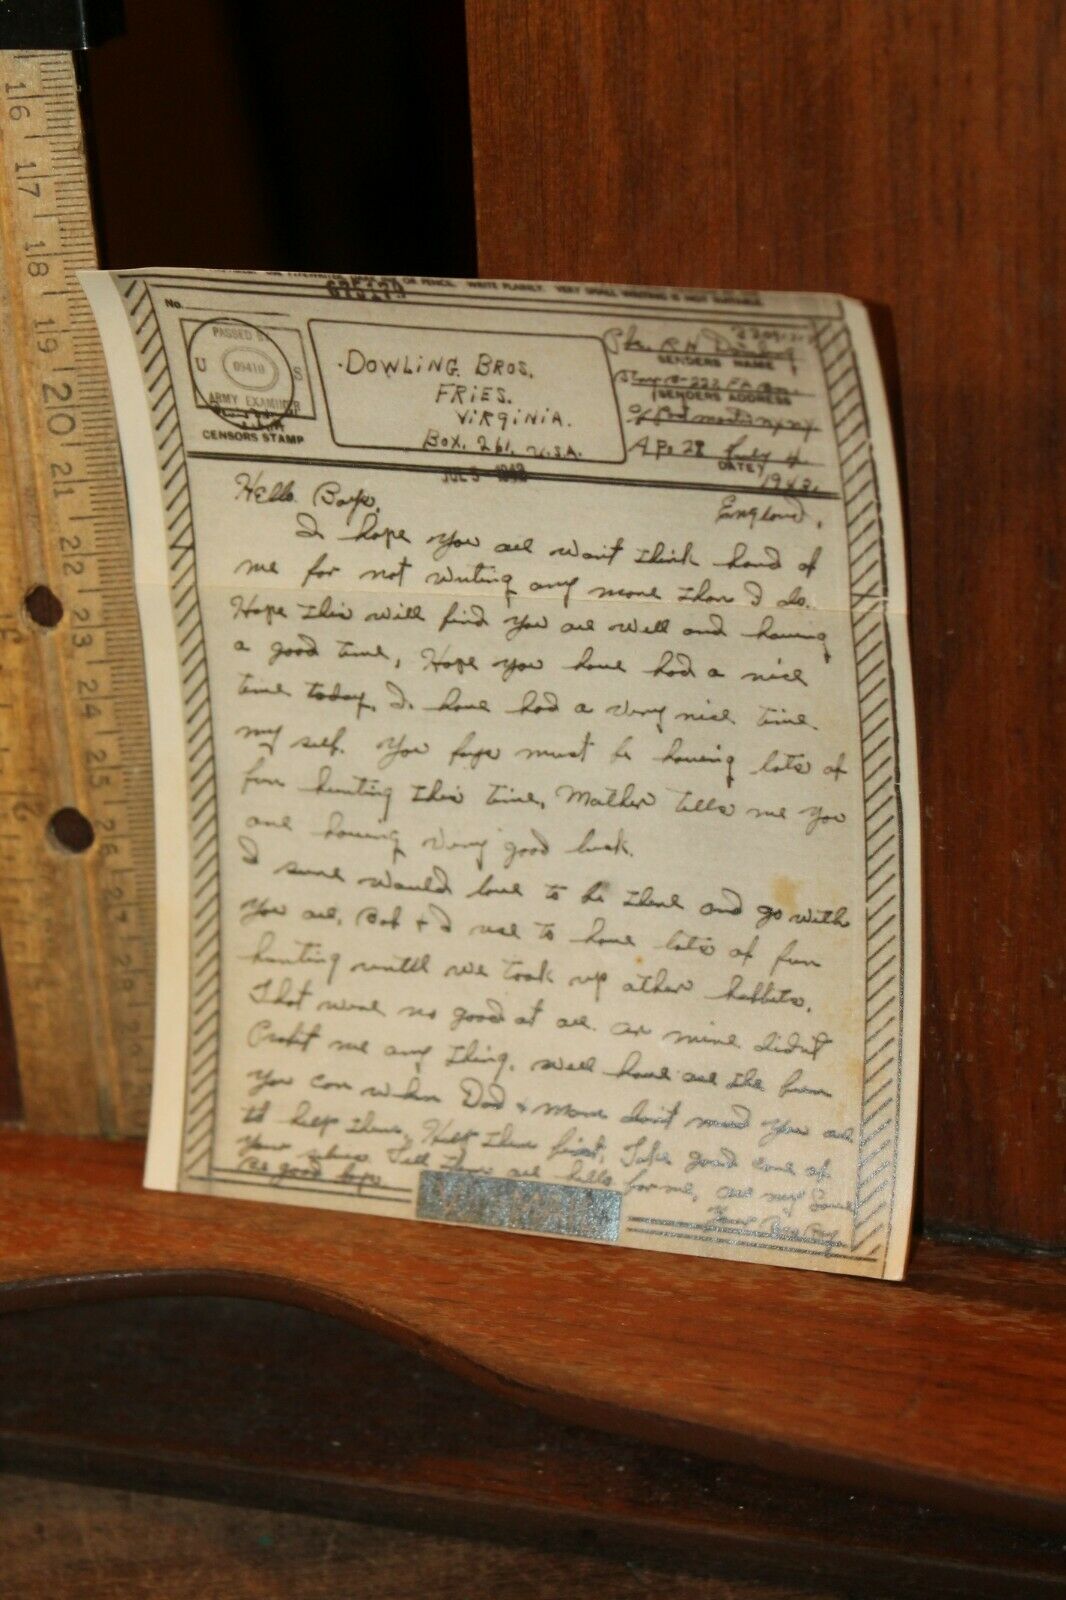 16
17
18
19
20
21
22
23
24
25
26
27
OR PENCIL. WRITE PLAINLY. VERY SMALL WRITING IS NOT SUITABLE.
No.
PASSED BY
U S
09410
ARMY EXAMINER
CENSORS STAMP
DOWLING BROS.
FRIES.
VIRGINIA.
BOX. 261, U.S.A.
Pfc. R.N. Dowling
SENDERS NAME
Btry B-222 F.A. Bn.
SENDERS ADDRESS
A.P.O. 28 July 4
DATE
1943.
England,
Hello Boys,
I hope you all won't think hard of
me for not writing any more than I do.
Hope this will find you all well and having
a good time, Hope you have had a nice
time today, I have had a very nice time
my self. You boys must be having lots of
fun hunting this time, Mother tells me you
are having very good luck.
I sure would love to be there and go with
you all, Bob + I use to have lots of fun
hunting until we took up other habbits,
That were no good at all. or mine didn't
Profit me any thing. well have all the fun
you can when Dad + mom don't need you all
to help them, Help them first, Take good care of
your selves Tell them all hello for me,
Be good boys